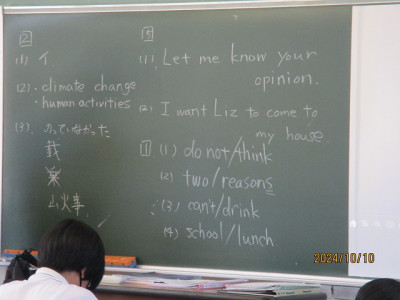 2
(1) イ
(2)・climate change
・human activities
(3)
山火事
5
(1) Let me know your
opinion.
(2) I want Liz to come to
my house.
1 (1) do not/think
(2) two/reasons
(3) can't/drink
(4) school/lunch
2024/10/10